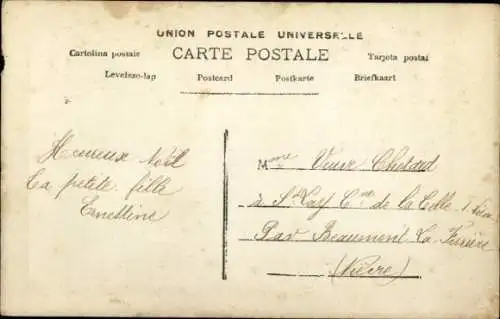 UNION POSTALE UNIVERSELLE
CARTE POSTALE
Cartolina postale
Tarjeta postal
Levelezo-lap
Postcard
Postkarte
Briefkaart
Heureux Noël
Ta petite fille
Ernestine
Mme Veuve Chetard
à St Lay Cne de la Celle
Par Beaumont La Ferrière
(Nièvre)